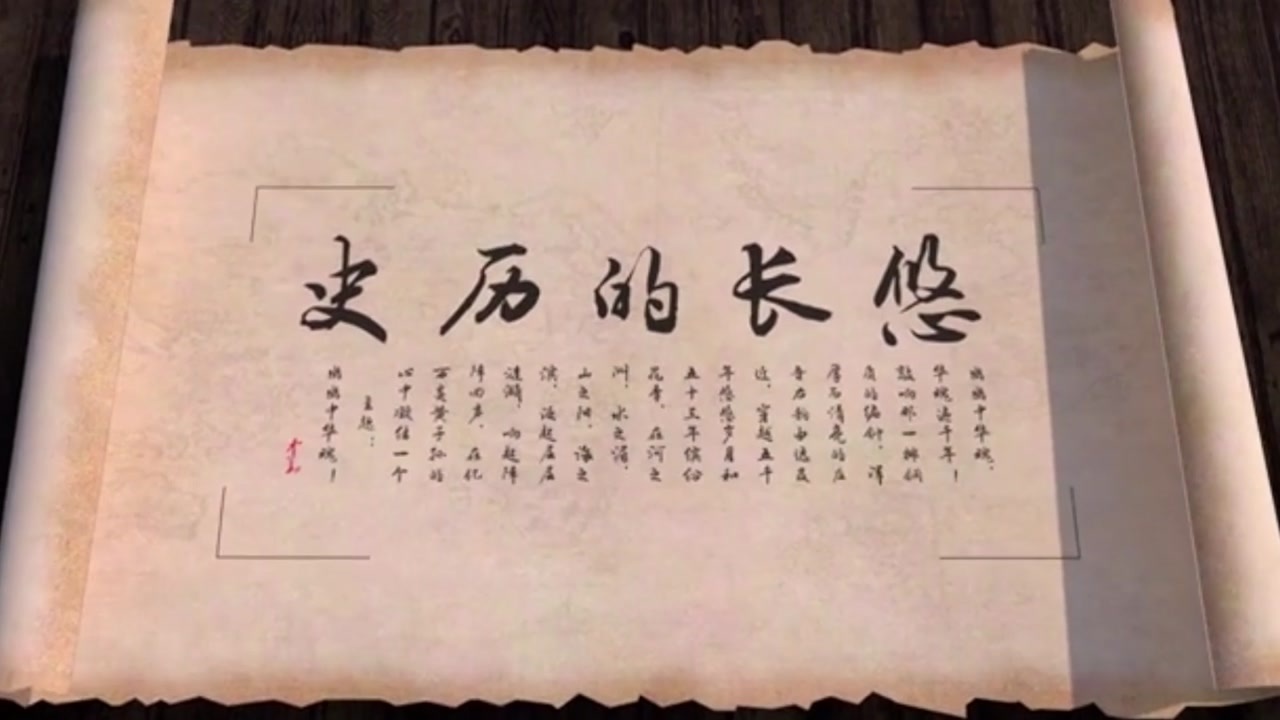 悠长的历史
中华魂,
华魂 千年!
敲响那一排铜
质的编钟,浑
厚而清亮的
由远及
近,穿越五千
年悠悠岁月和
五十三年缤纷
花季,在河之
洲,水之湄,
山之阿,海之
滨,漾起层层
涟漪,响起阵
阵回声,在亿
万炎黄子孙的
心中凝结一个
主题:
中华魂!